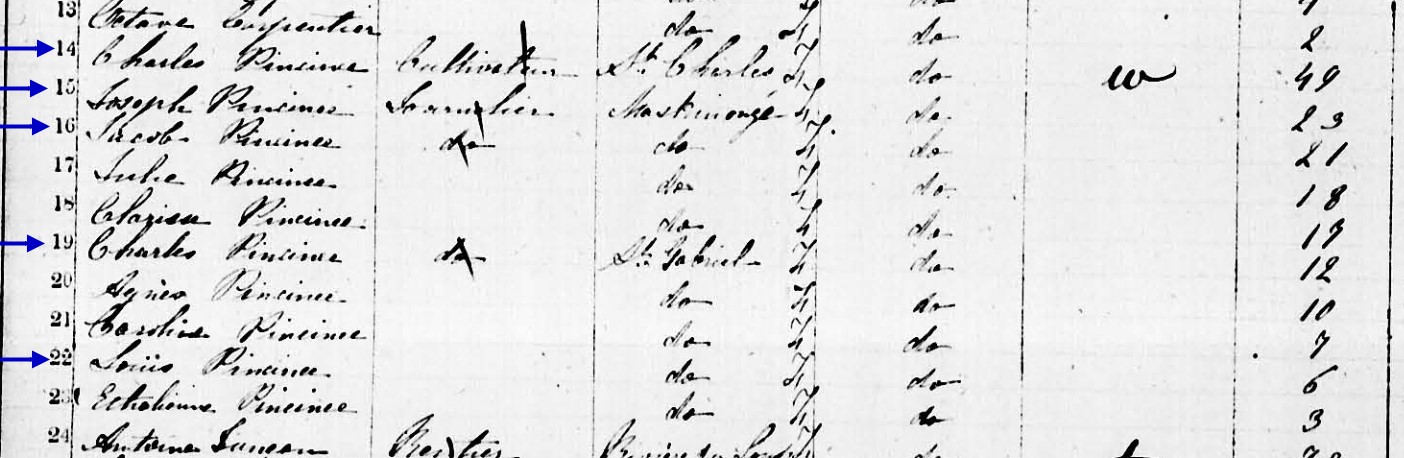 13 Octave Carpentier do do 2
14 Charles Pincince Cultivateur St Charles do w 49
15 Joseph Pincince Journalier Maskinongé do 23
16 Jacob Pincince do do do 21
17 Julie Pincince do do 18
18 Clarisse Pincince do do 19
19 Charles Pincince do St Gabriel do 12
20 Agnès Pincince do do 10
21 Caroline Pincince do do 7
22 Loüis Pincince do do 6
23 Pincince do do 3
24 Antoine Rentier